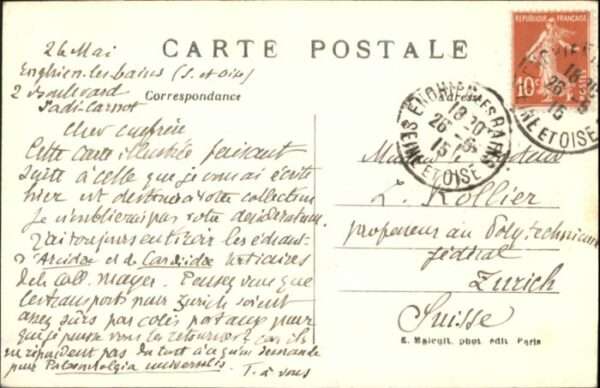 CARTE POSTALE
Correspondance
Adresse
RÉPUBLIQUE FRANÇAISE
10c
ENGHIEN LES BAINS
18 20
26 - 5
15
SEINE ET OISE
26 Mai
Enghien-les-bains (S. et Oise)
2 Boulevard
Sadi Carnot
Cher confrère
Cette carte illustrée faisant
suite à celle que je vous ai écrite
hier est destinée à votre collection
Je n'oublierai pas votre desideratum.
J'ai toujours entre les
Arcidae et de Carditidae tertiaires
de la Coll. Mayer. Pensez vous que
les transports pour Zurich soient
assez sûrs par colis postaux pour
que je puisse vous les retourner? car ils
ne répondent pas du tout à ce qu'on demande
pour Palaeontologia universalis. T. à vous
L. Rollier
professeur au Polytechnicum
fédéral
Zurich
Suisse
E. Malcuit, phot. édit. Paris